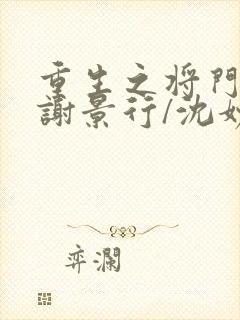 重生之将门
謝景行/沈妙
弈瀾